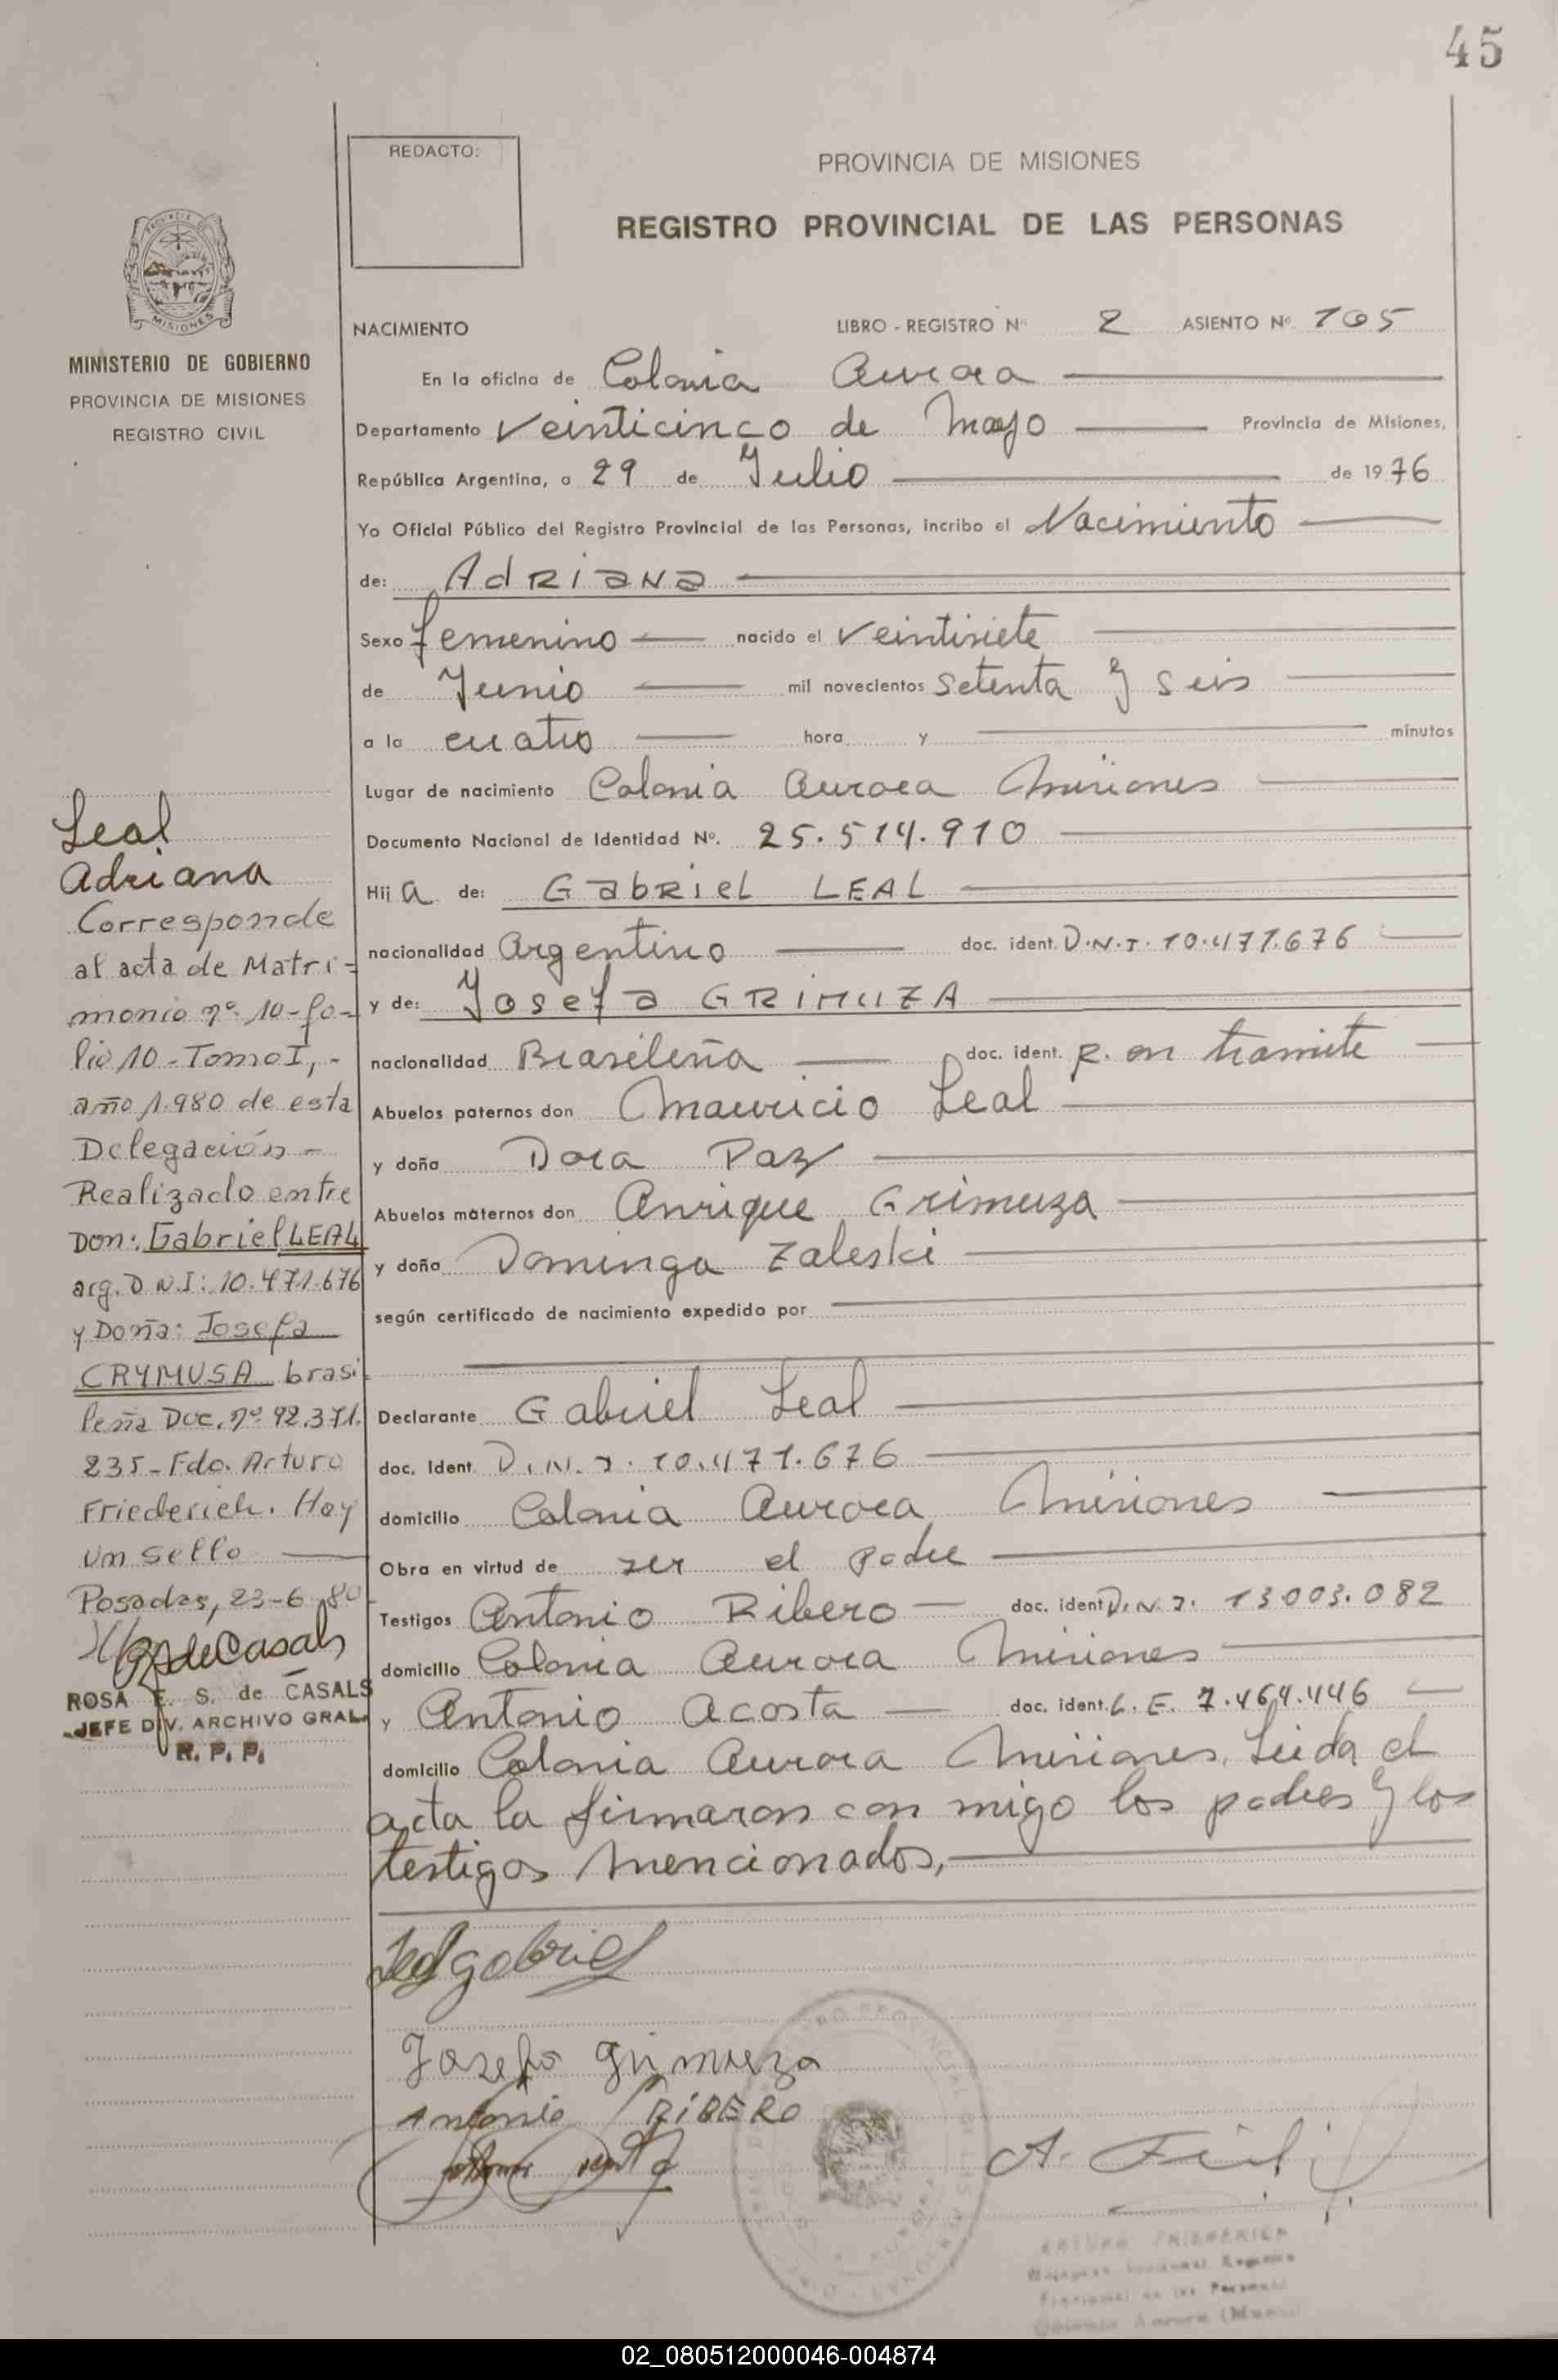 45
REDACTO:
PROVINCIA DE MISIONES
REGISTRO PROVINCIAL DE LAS PERSONAS
MISIONES
MINISTERIO DE GOBIERNO
PROVINCIA DE MISIONES
REGISTRO CIVIL
NACIMIENTO LIBRO - REGISTRO Nº 2 ASIENTO Nº. 105
En la oficina de Colonia Aurora
Departamento Veinticinco de Mayo Provincia de Misiones,
República Argentina, a 29 de Julio de 1976
Yo Oficial Público del Registro Provincial de las Personas, incribo el Nacimiento
de: AdRiaNa
Sexo femenino nacido el veintisiete
de Junio mil novecientos setenta y seis
a la cuatro hora y minutos
Lugar de nacimiento Colonia Aurora Misiones
Documento Nacional de Identidad Nº. 25.514.910
Hija de: GabRieL LEAL
nacionalidad Argentino doc. ident. D.N.I. 10.471.676
y de: Josefa GRiMUZA
nacionalidad Brasileña doc. ident. R. en tramite
Abuelos paternos don Mauricio Leal
y doña Dora Paz
Abuelos maternos don Anrique Grimuza
y doña Dominga Zaleski
según certificado de nacimiento expedido por
Declarante Gabriel Leal
doc. Ident D.N.I. 10.471.676
domicilio Colonia Aurora Misiones
Obra en virtud de ser el padre
Testigos Antonio Ribero doc. ident D.N.I. 13.003.082
domicilio Colonia Aurora Misiones
y Antonio Acosta doc. ident. L.E. 7.464.446
domicilio Colonia Aurora Misiones, Leida el
acta la firmaron con migo los padres y los
testigos mencionados,
Leal
Adriana
Corresponde
al acta de Matri-
monio nº 10-fo-
lio 10-Tomo I,-
año 1.980 de esta
Delegación-
Realizado entre
Don: Gabriel LEAL
arg. D N.I: 10.471.676
y Doña: Josefa
CRYMUSA brasi
leña Doc. nº 92.371.
235-Fdo. Arturo
Friederich. Hay
un sello
Posadas, 23-6-80
de Casals
ROSA E. S. de CASALS
JEFE DIV. ARCHIVO GRAL.
R. P. P.
Leal gabriel
Josefa Grimuza
Antonio RiBERO
02_080512000046-004874